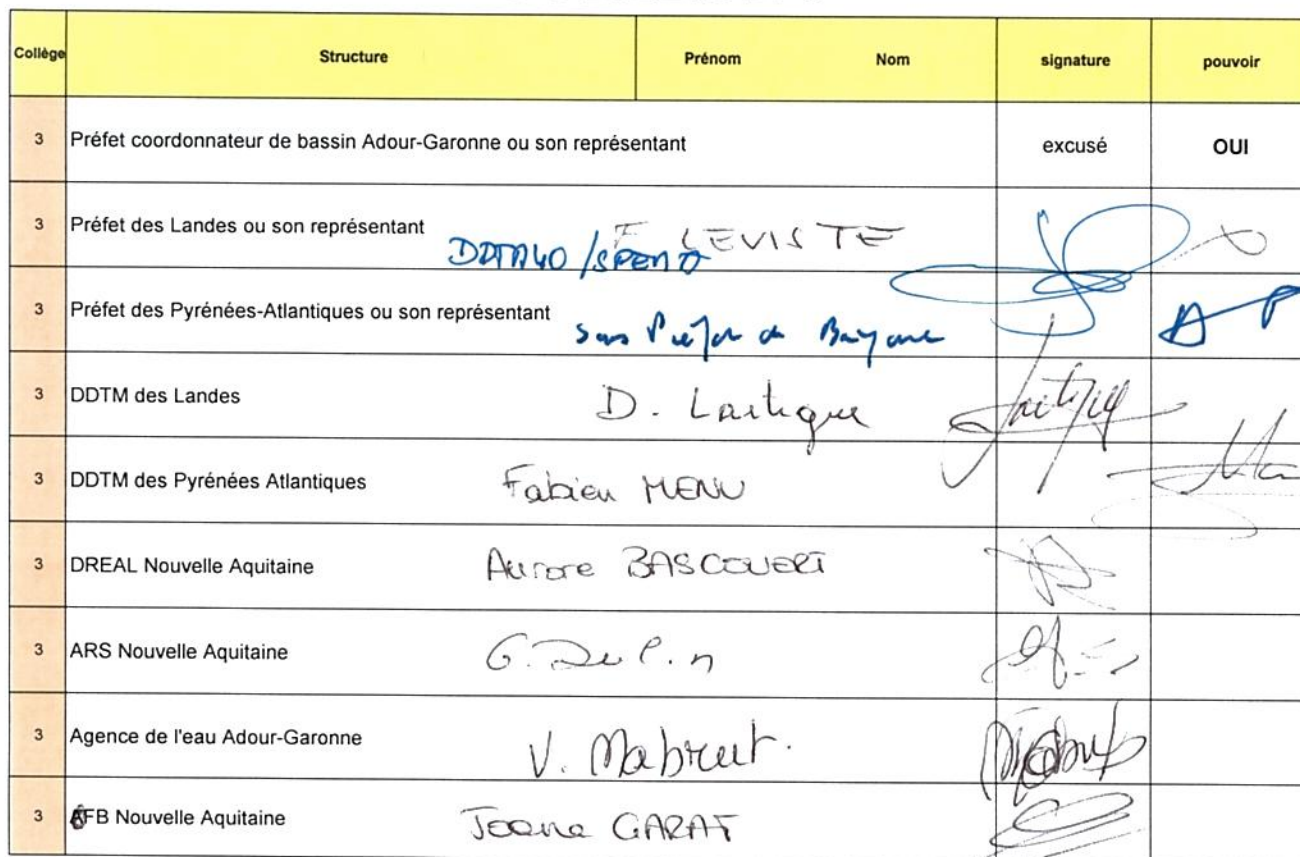 Collège Structure Prénom Nom signature pouvoir
3 Préfet coordonnateur de bassin Adour-Garonne ou son représentant excusé OUI
3 Préfet des Landes ou son représentant F LEVISTE
DDTM40 /SPEMA
3 Préfet des Pyrénées-Atlantiques ou son représentant
Sous Préfet de Bayonne
3 DDTM des Landes D. Lartigue
3 DDTM des Pyrénées Atlantiques Fabien MENU
3 DREAL Nouvelle Aquitaine Aurore BASCOUERT
3 ARS Nouvelle Aquitaine G.
3 Agence de l'eau Adour-Garonne V. Mabrut.
3 AFB Nouvelle Aquitaine Joana GARAT